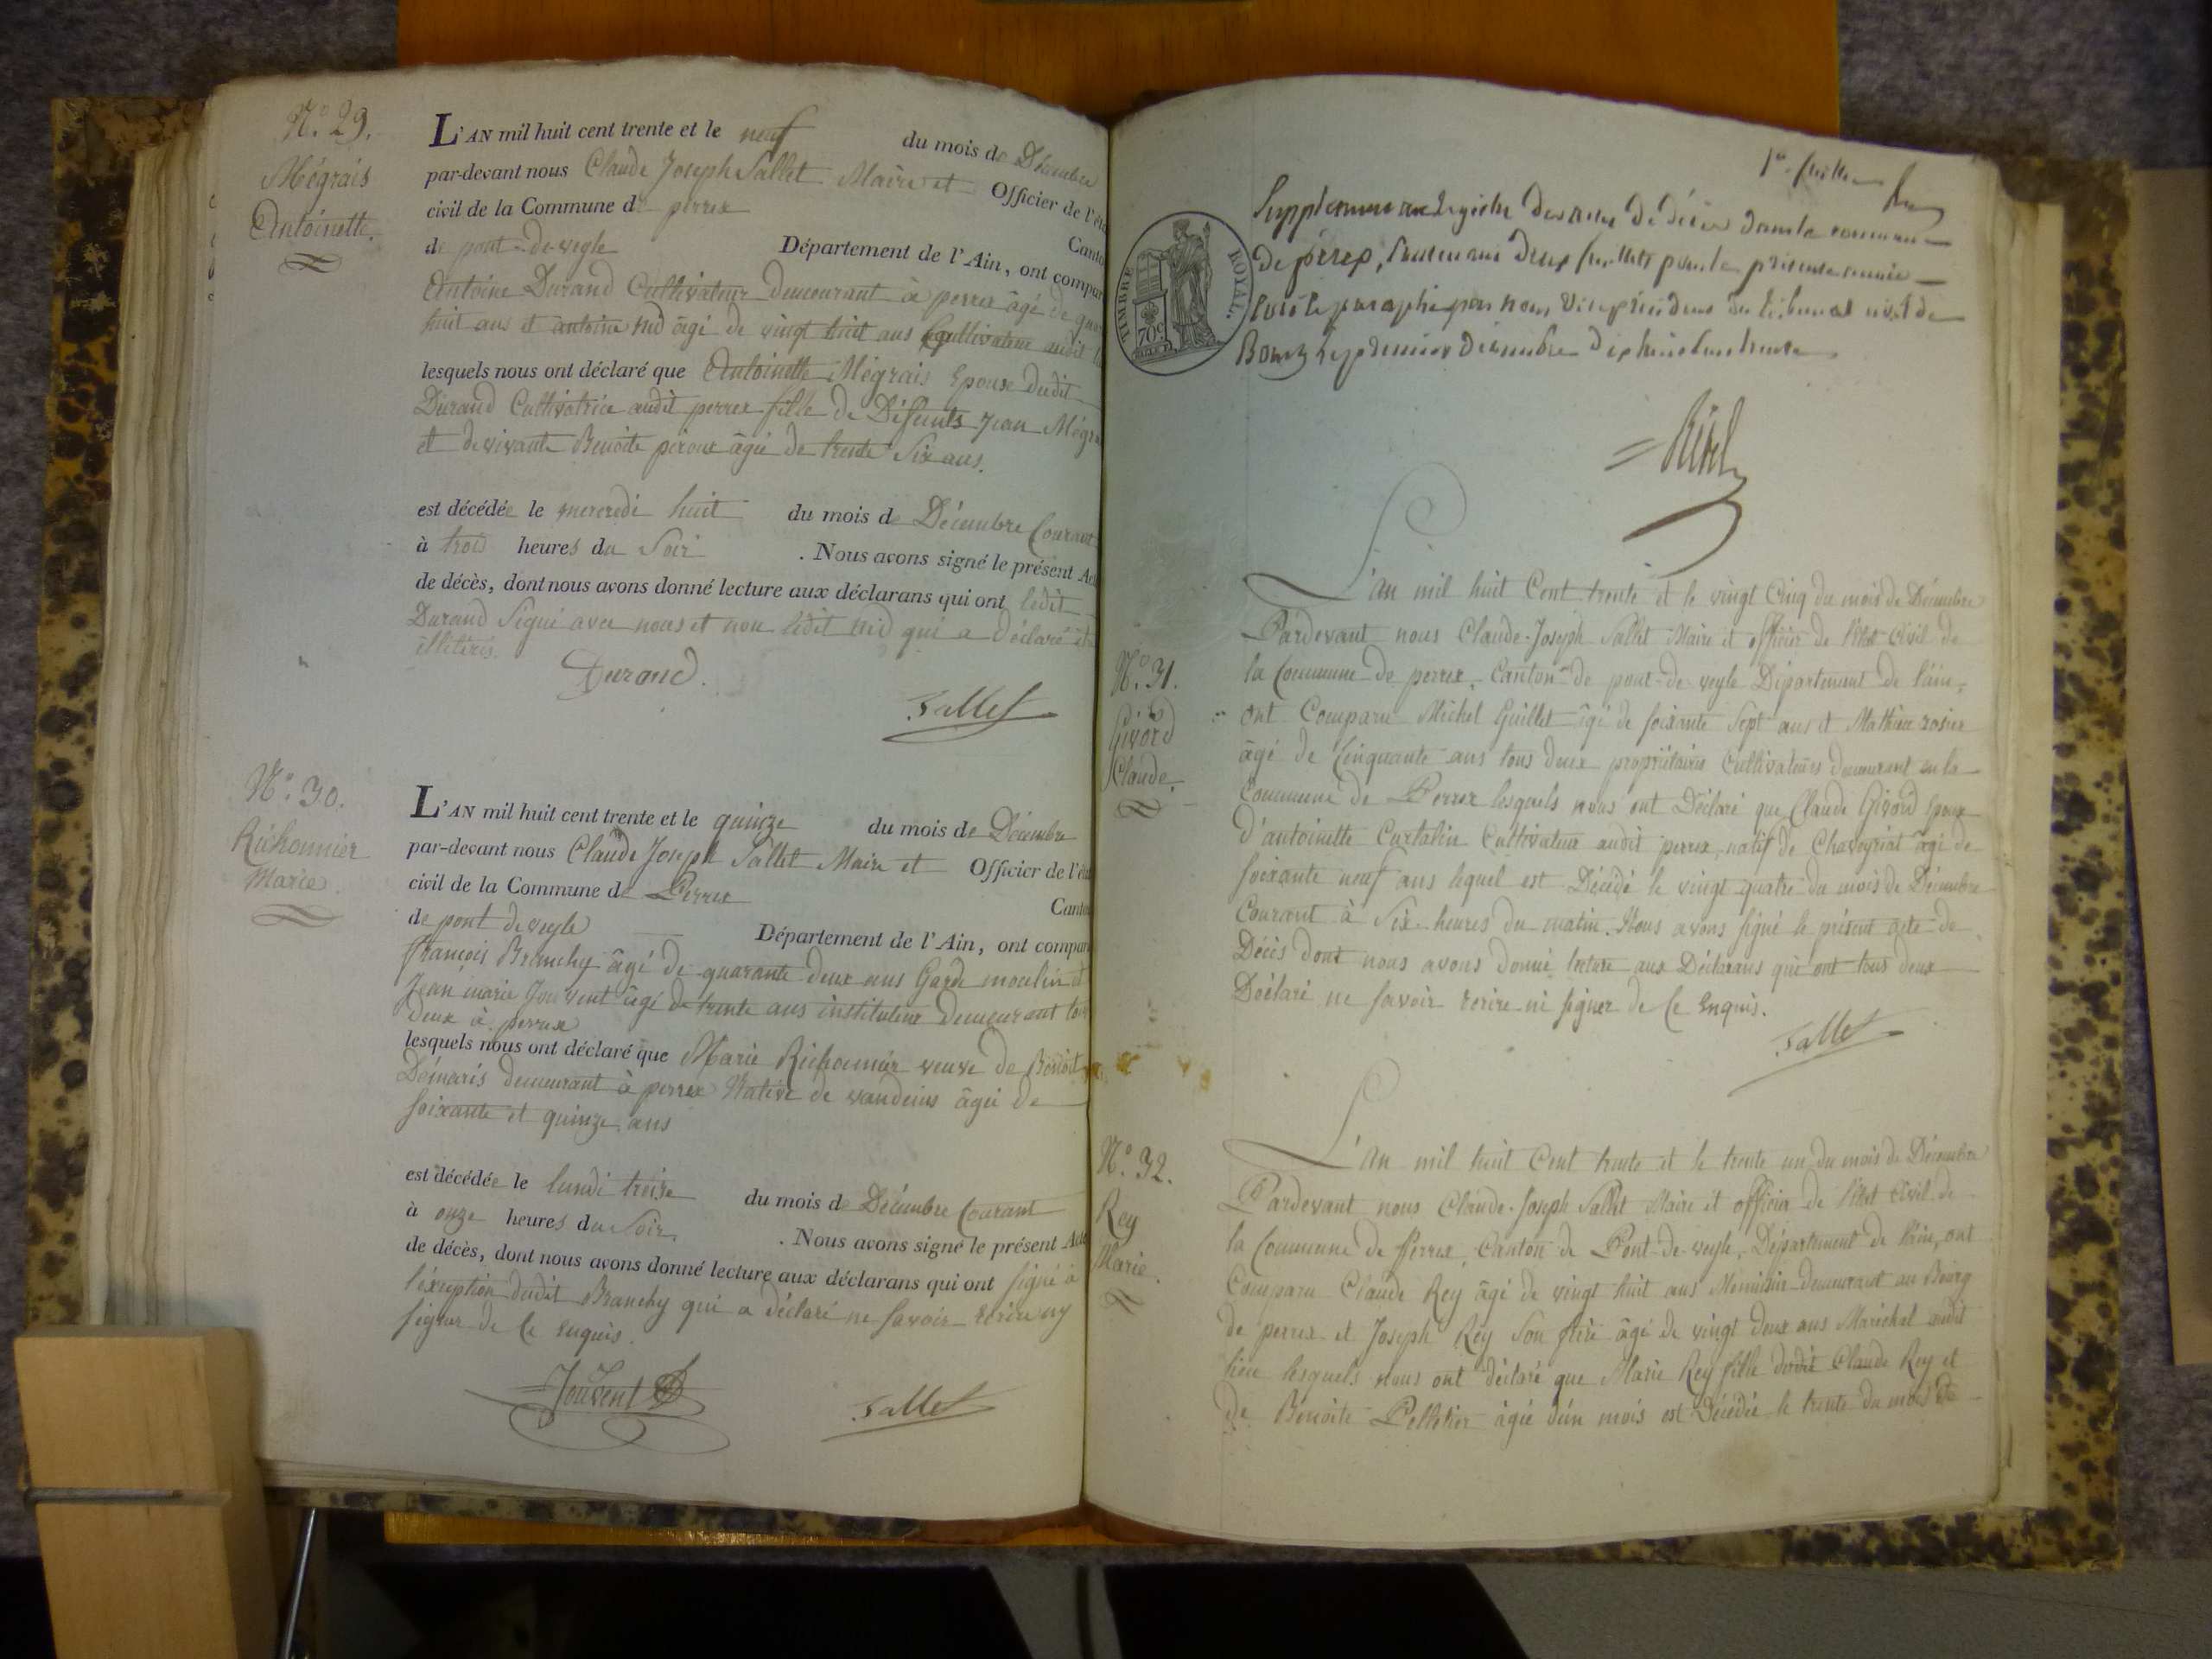 N.º 29.
Mégrais
Antoinette.
L'AN mil huit cent trente et le neuf du mois de Décembre
par-devant nous Claude Joseph Sallet Maire et Officier de l'éta
civil de la Commune de perrex
de pont-de-veyle Canto
Département de l'Ain, ont compar
Antoine Durand Cultivateur demeurant à perrex âgé de
huit ans et antoine nid âgé de vingt huit ans Cultivateur audit
lesquels nous ont déclaré que Antoinette Mégrais Epouse dudit
Durand Cultivatrice audit perrex fille de Défunts Jean Mégra
et de vivante Benoite piroux âgée de trente Six ans.
est décédée le mercredi huit du mois de Décembre Courant
à trois heures du Soir . Nous avons signé le présent Act
de décès, dont nous avons donné lecture aux déclarans qui ont ledit
Durand Signé avec nous et non ledit nid qui a déclaré être
illitéré.
Durand.
Sallet
N.º 30.
Richonnier
Marie.
L'AN mil huit cent trente et le quinze du mois de Décembre
par-devant nous Claude Joseph Sallet Maire et Officier de l'éta
civil de la Commune de Perrex
de pont de veyle Canton
Département de l'Ain, ont compar
françois Branchy âgé de quarante deux ans Garde moulin et
Jean marie Jouvent âgé de trente ans instituteur Demeurant tous
Deux à perrex
lesquels nous ont déclaré que Marie Richonnier veuve de Benoit
Démaris demeurant à perrex Native de vandeins âgée de
soixante et quinze ans
est décédée le lundi treize du mois de Décembre Courant
à onze heures du Soir . Nous avons signé le présent Acte
de décès, dont nous avons donné lecture aux déclarans qui ont signé à
l'éxception dudit Branchy qui a déclaré ne savoir écrire ny
signer de ce enquis.
Jouvent
Sallet
1er feuillet
Supplement au registre des actes de décès dans la commune
de perrex, contenant deux feuillets pour la présente année
coté et paraphé par nous vice président du tribunal civil de
Bourg le premier décembre dix huit cent trente
TIMBRE ROYAL.
70c
N.º 31.
Givord
Claude.
L'an mil huit Cent trente et le vingt Cinq du mois de Décembre
Pardevant nous Claude-Joseph Sallet Maire et officier de l'état Civil de
la Commune de perrex, Canton de pont-de-veyle Département de l'ain,
ont Comparu Michel Guillet âgé de soixante Sept ans et Mathieu rosier
âgé de Cinquante ans tous deux propriétaires Cultivateurs demeurant en la
Commune de Perrex lesquels nous ont Déclaré que Claude Givord Epoux
d'antoinette Curtalin Cultivateur audit perrex, natif de Chaveyriat âgé de
soixante neuf ans lequel est Décédé le vingt quatre du mois de Décembre
Courant à Six heures du matin. Nous avons signé le présent acte de
Décès dont nous avons donné lecture aux Déclarans qui ont tous deux
Déclaré ne savoir ecrire ni signer de Ce Enquis.
Sallet
N.º 32.
Rey
Marie.
L'An mil huit Cent trente et le trente un du mois de Décembre
Pardevant nous Claude-Joseph Sallet Maire et officier de l'état Civil de
la Commune de Perrex, Canton de Pont-de-veyle, Département de l'ain, ont
Comparu Claude Rey âgé de vingt huit ans Menuisier demeurant au Bourg
de perrex et Joseph Rey Son frère âgé de vingt deux ans Maréchal audit
lieu lesquels nous ont déclaré que Marie Rey fille dudit Claude Rey et
de Benoite Pelletier âgée d'un mois est Décédée le trente du mois de